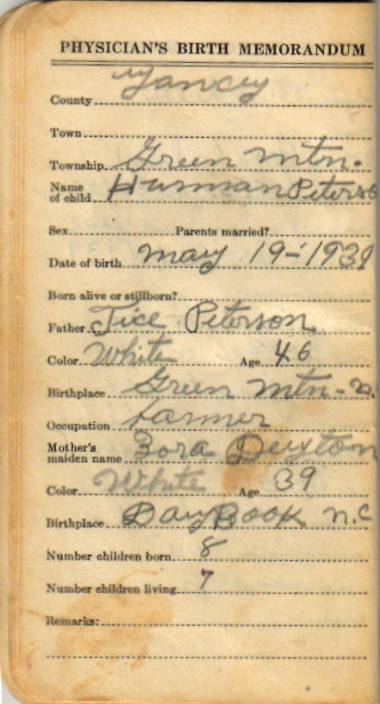 PHYSICIAN'S BIRTH MEMORANDUM
County Yancey
Town
Township Green Mtn.
Name of child Hurman Peterso
Sex Parents married?
Date of birth may 19-1931
Born alive or stillborn?
Father Tice Peterson
Color White Age 46
Birthplace Green Mtn-n.
Occupation farmer
Mother's maiden name Zora Deyton
Color White Age 39
Birthplace Day Book n.C
Number children born 8
Number children living 7
Remarks: